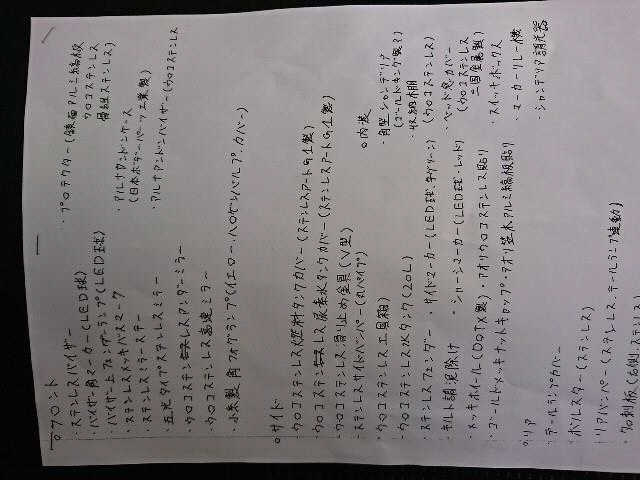 ○フロント
・ステンレスバイザー
・バイザー角マーカー(LED球)
・バイザー上フェンダーランプ(LED球)
・ステンレスメッキバスマーク
・ステンレスミラーステー
・五光タイプステンレスミラー
・ウロコステンレスアンダーミラー
・ウロコステンレス高速ミラー
・小糸製角フォグランプ(イエロー・ハロゲンバルブ・カバー)
・プロテクター(鏡面アルミ縞板
ウロコステンレス
骨組ステンレス)
・アルナアンドンケース
(日本ボデーパーツ工業製)
・アルナアンドンバイザー(ウロコステンレス)
○サイド
・ウロコステンレス燃料タンクカバー(ステンレスアート製)
・ウロコステンレス尿素水タンクカバー(ステンレスアート製)
・ウロコステンレス滑り止め金具(V型)
・ステンレスサイドバンパー(丸パイプ)
・ウロコステンレス工具箱
・ウロコステンレス水タンク(20L)
・ステンレスフェンダー
・サイドマーカー(LED球・グリーン)
・キルト調泥除け
・シャーシマーカー(LED球・レッド)
・メッキホイール(DOTX製)
・アオリウロコステンレス貼り
・ゴールドメッキナットキャップ
・アオリ笠木アルミ縞板貼り
○内装
・角型シャンデリア
(ゴールドキング製)
・収納棚
(ウロコステンレス)
・ベッド窓カバー
(ウロコステンレス
・スイッチボックス
・マーカーリレー横
・シャンデリア調光器
○リア
・テールランプカバー
・ポルスター(ステンレス)
・リアバンパー(ステンレス、テールランプ連動)